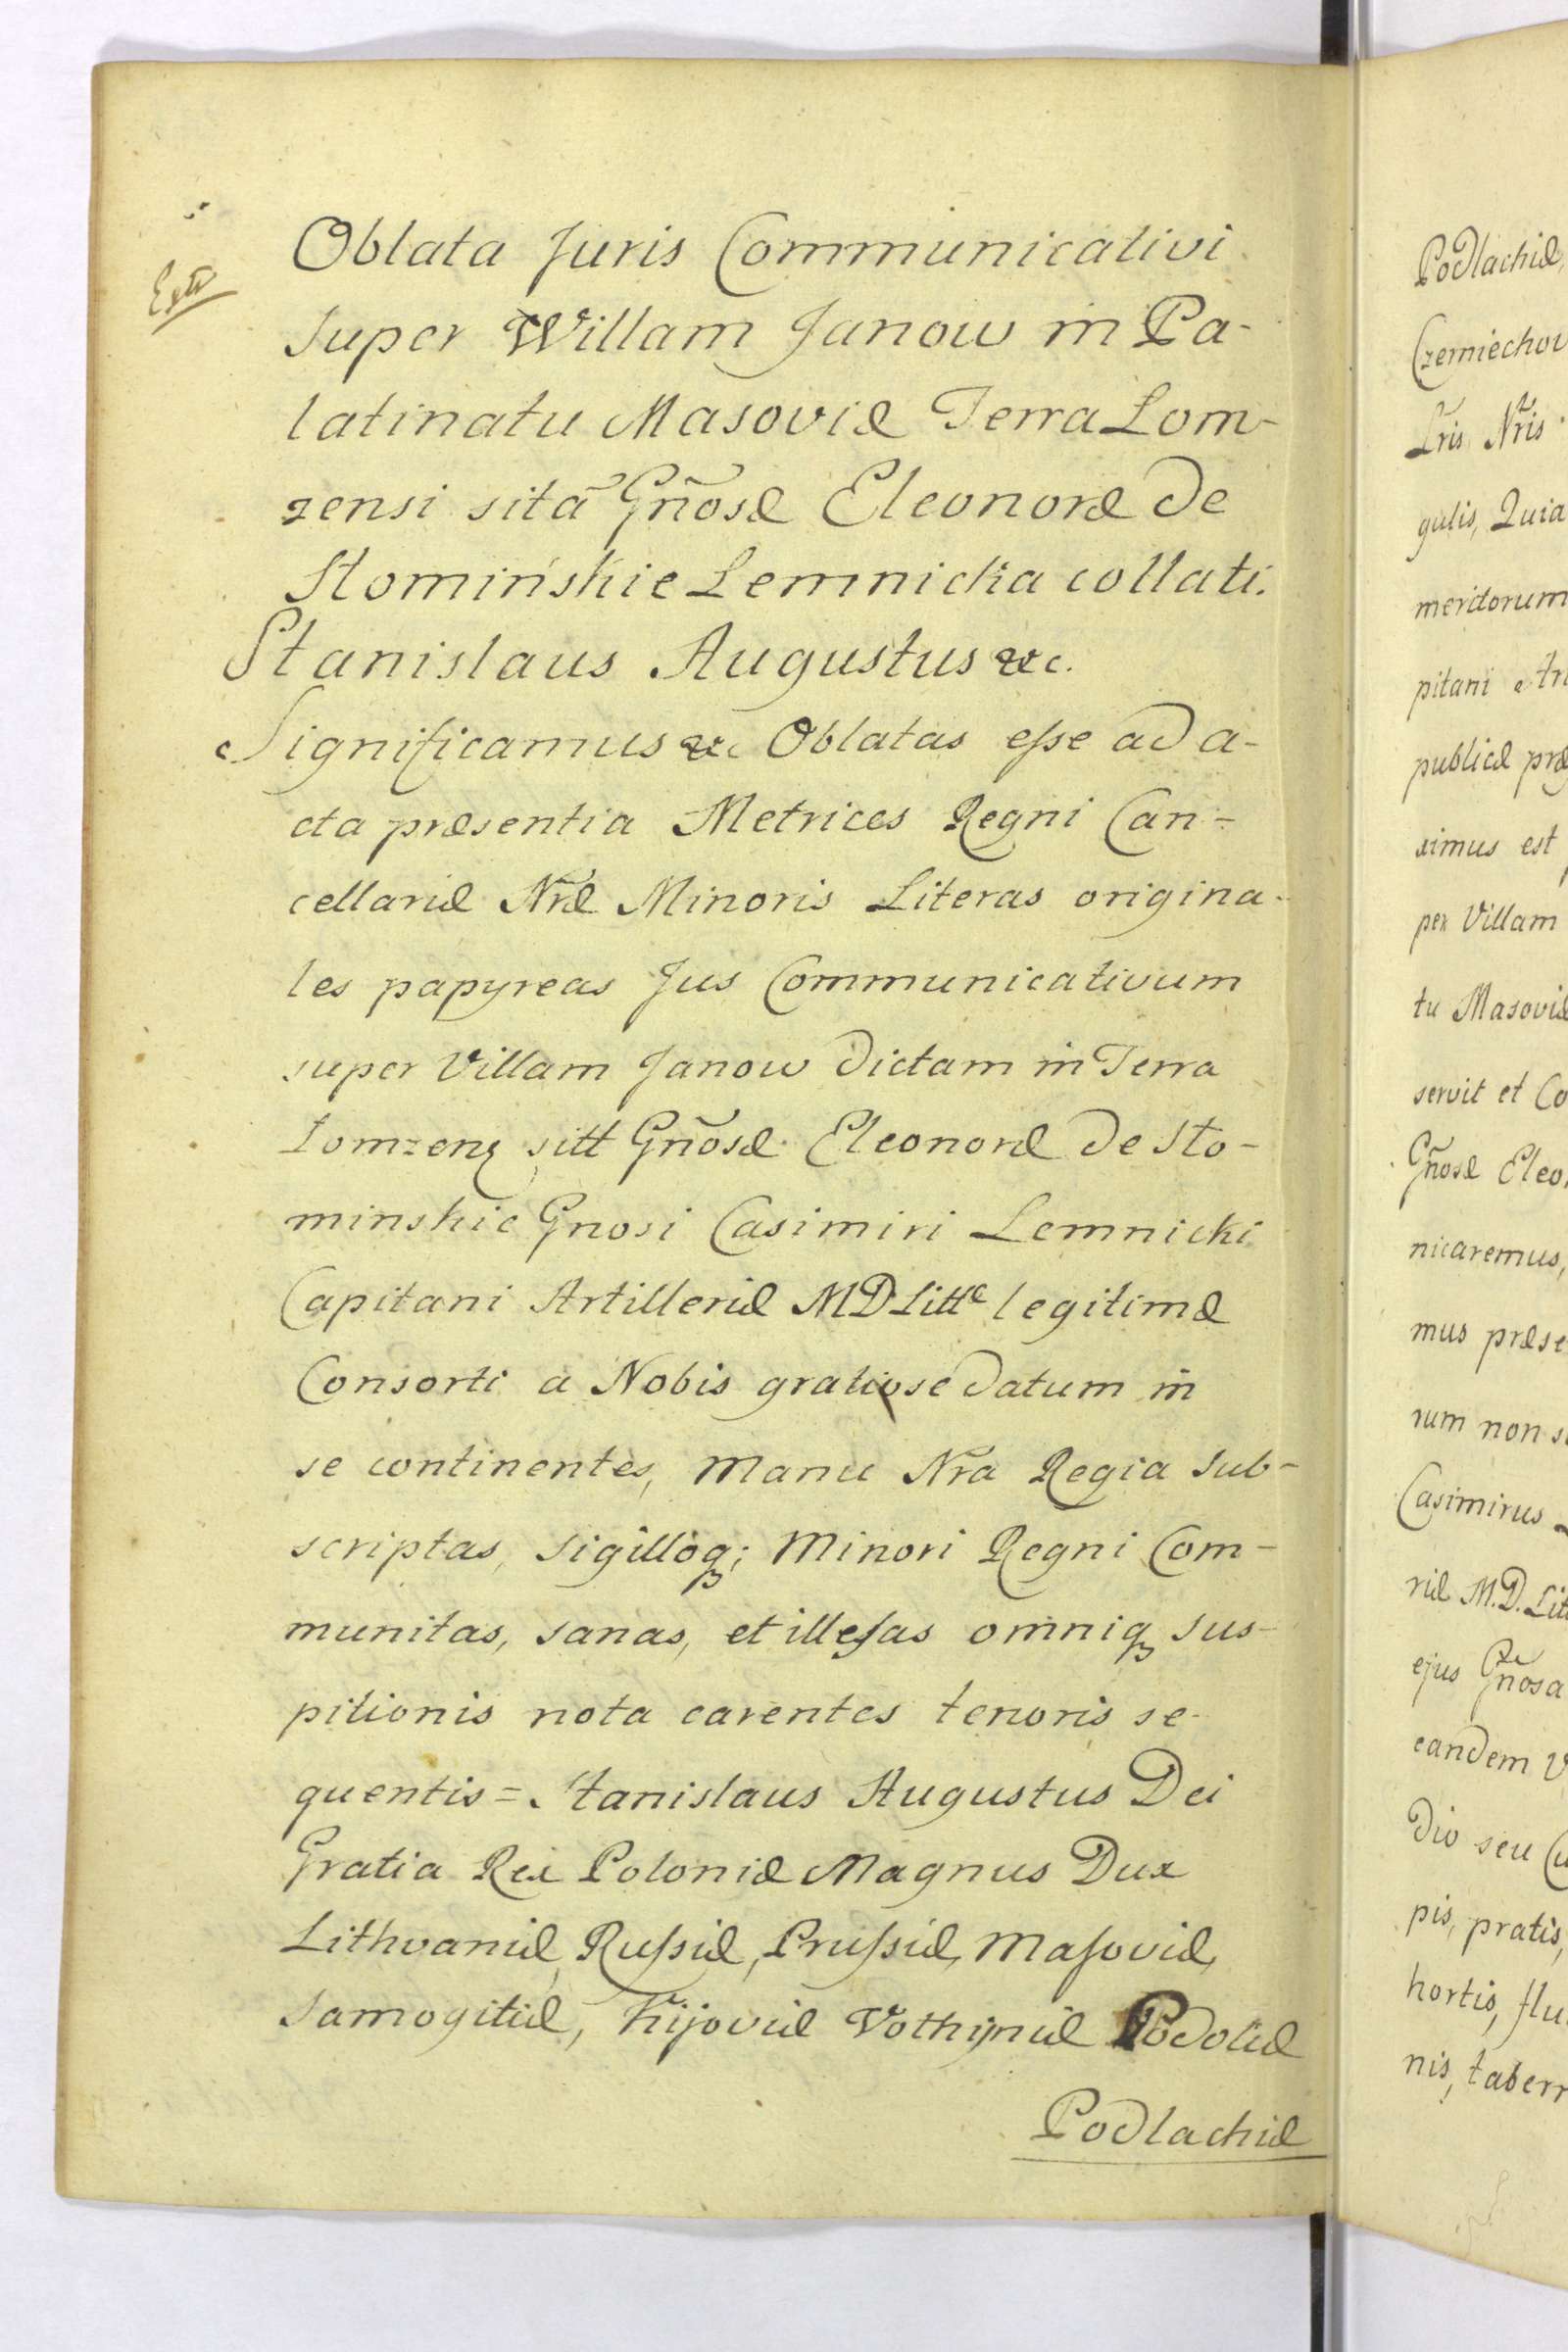 Oblata Juris Communicativi
super Willam Janow in Pa-
latinatu Masoviæ Terra Lom-
zensi sitã Gñosæ Eleonoræ de
Stomińskie Lemnicka collati.
Stanislaus Augustus &c.
Significamus &c Oblatas eſse ad a-
cta præsentia Metrices Regni Can-
cellariæ Nr̃æ Minoris Literas origina-
les papyreas Jus Communicativum
super Villam Janow dictam in Terra
Lomzenȝ sitt Gñosæ Eleonoræ de Sto-
minskie Gnosi Casimiri Lemnicki
Capitani Artilleriæ MD Littᵉ legitimæ
Consorti a Nobis gratiose datum in
se continentes, Manu Nr̃a Regia sub-
scriptas, sigilloq; Minori Regni Com-
munitas, sanas, et illeſas omniq sus-
pitionis nota carentes tenoris se-
quentis = Stanislaus Augustus Dei
Gratia Rex Poloniæ Magnus Dux
Lithvaniæ, Ruſsiæ, Pruſsiæ, Maſoviæ,
Samogitiæ, Kijoviæ Vothyniæ Podoliæ
Podlachiæ
Podlachiæ,
Czerniechov
Lr̃is Nr̃is
gulis, Quia
meritorum
pitani Ar
publicæ præ
ximus est
per Villam
tu Masoviæ
servit et Co
Gñosæ Eleo
nicaremus,
mus præse
rum non s
Casimirus L
riæ M.D. Lit
ejus Gñosa
eandem V
dio seu Cu
pis, pratis,
hortis, flu
nis, tabern